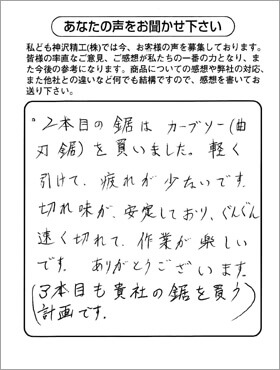 あなたの声をお聞かせ下さい
私ども神沢精工(株)では今、お客様の声を募集しております。
皆様の率直なご意見、ご感想が私たちの一番の力となり、ま
た今後の参考になります。商品についての感想や弊社の対応、
また他社との違いなど何でも結構ですので、感想を書いてお
送り下さい。
。2本目の鋸は カーブソー(曲
刃鋸)を買いました。軽く
引けて、疲れが少ないです。
切れ味が、安定しており、ぐんぐん
速く切れて、作業が楽しい
です。ありがとうございます。
(3本目も貴社の鋸を買う
計画です。)